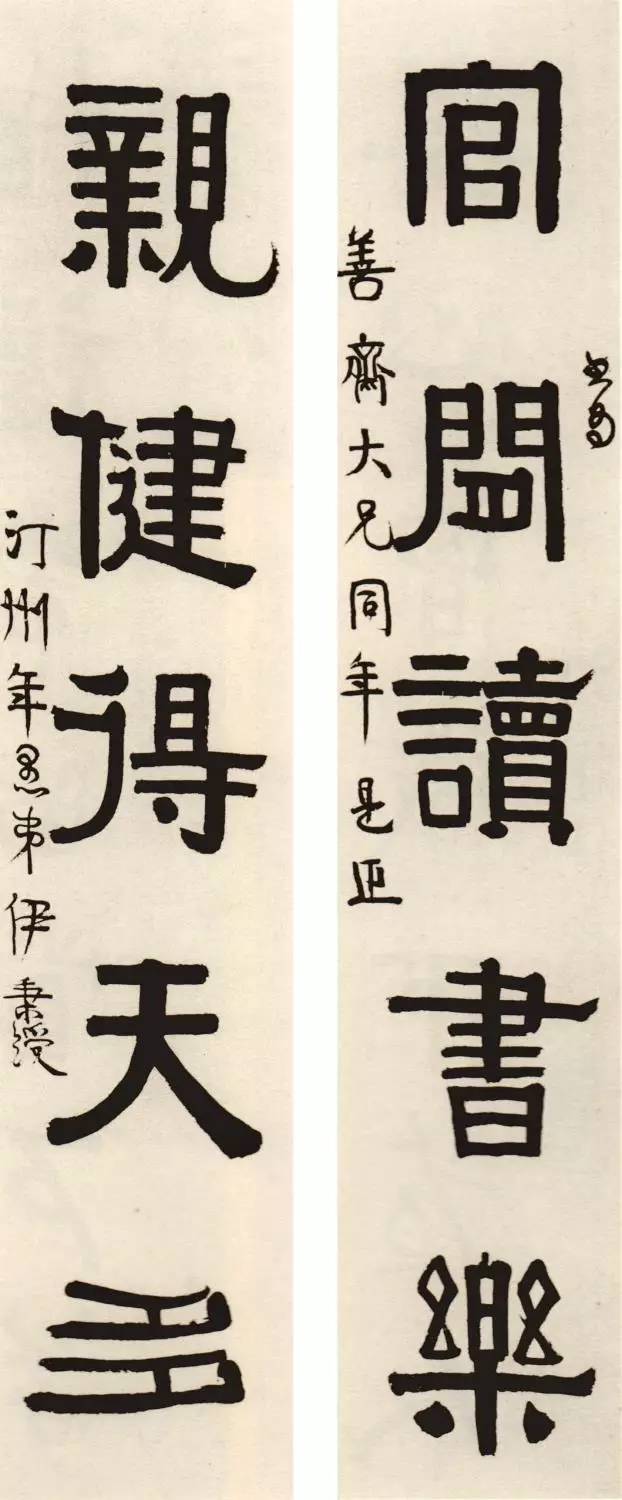 官閒讀書樂
善齋大兄同年是正
親健得天多
汀州年愚弟伊秉綬